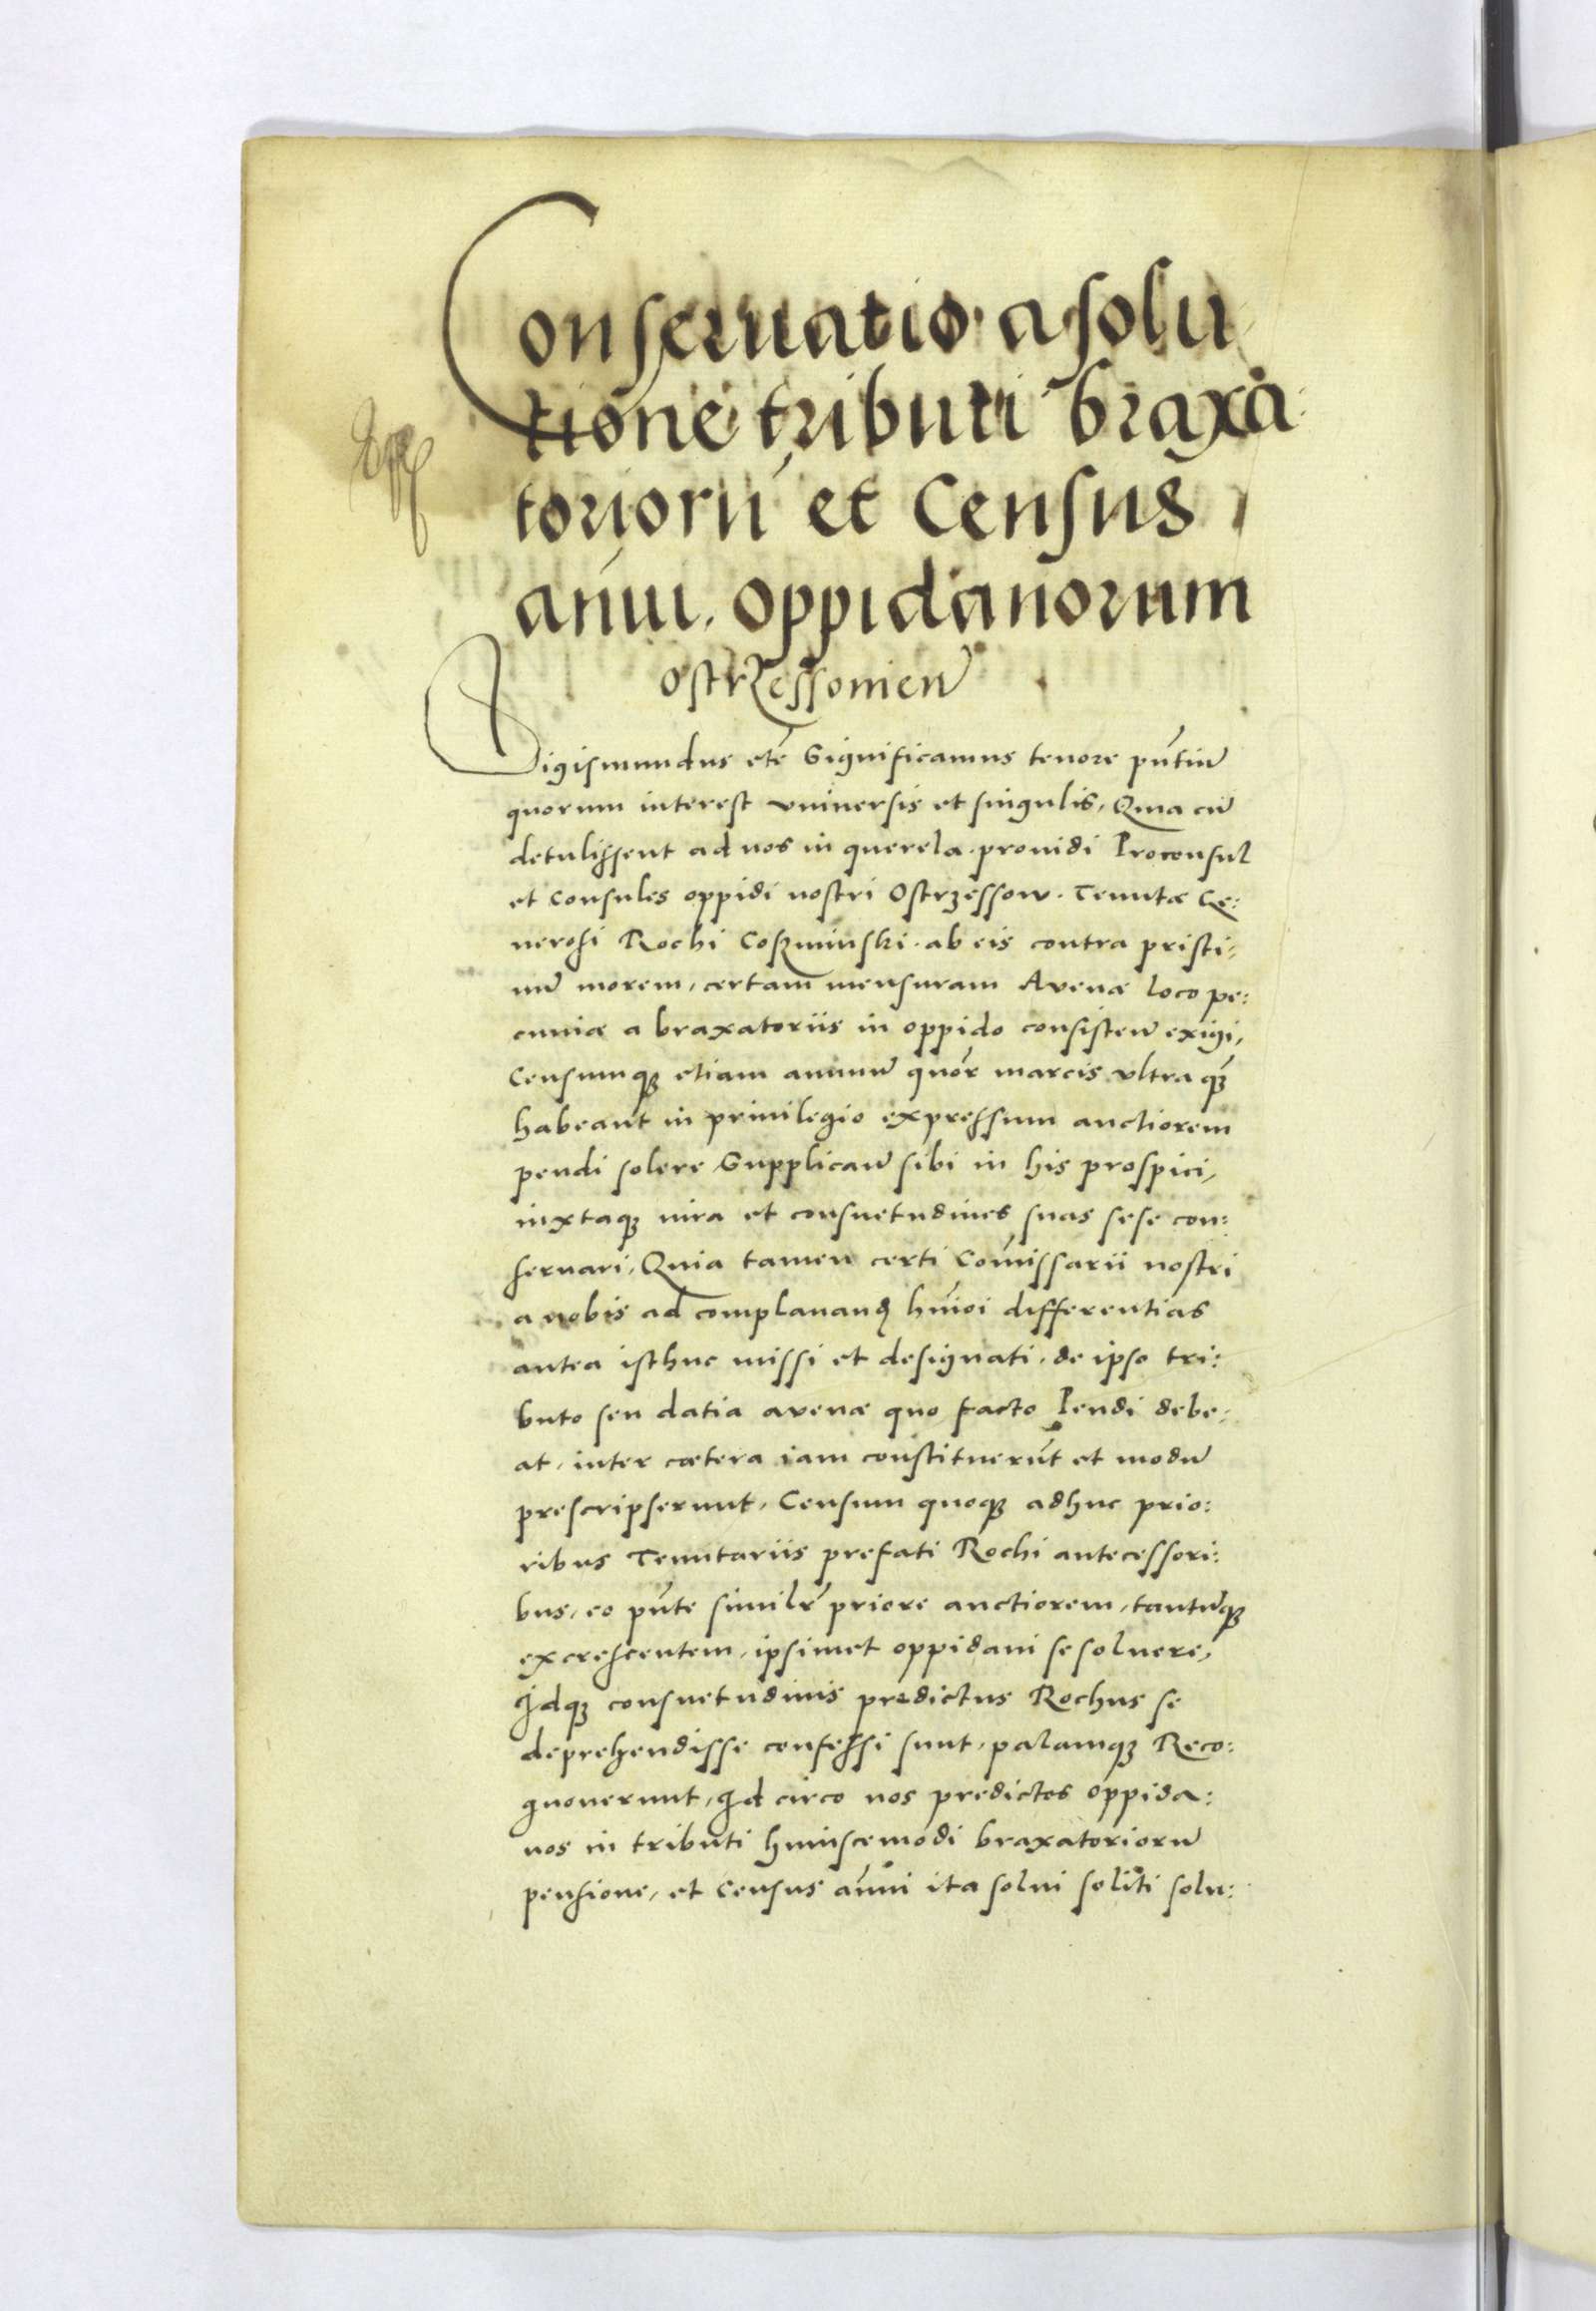 Conseruatio a solu
tione tributi braxa:
toriorũ et Census
añui. Oppidanorum
Ostrzessouien̄
Sigismundus etc̃ Significamus tenore pñtiũ
quorum interest vniuersis et singulis, Quia cũ
detulissent ad nos in querela. prouidi Proconsul
et Consules oppidi nostri Ostrzessow. Tenutæ Ge:
nerosi Rochi Cosminski. ab eis contra pristi:
nũ morem, certam mensuram Avenæ loco pe:
cuniæ a braxatoriis in oppido consisteñ exigi,
Censumqȝ etiam annuũ quor̃ marcis vltra qȝ̃
habeant in priuilegio expressum auctiorem
pendi solere, Supplicañ sibi in his prospici,
iuxtaqȝ iura et consuetudines suas sese con:
seruari, Quia tamen certi Com̃issarii nostri
a nobis ad complananđ hm̃oi differentias
antea isthuc missi et designati, de ipso tri:
buto seu datia avenæ quo facto Pendi debe:
at, inter cætera iam constituerũt et modũ
prescripserunt, Censum quoqȝ adhuc prio:
ribus Tenutariis prefati Rochi antecessori:
bus, eo pñte similr̃ priore auctiorem, tantũqȝ
excrescentem, ipsimet oppidani se soluere,
Idqȝ consuetudinis predictus Rochus se
deprehendisse confessi sunt, palamqȝ Reco:
gnouerunt, Id circo nos predictos oppida:
nos in tributi huiuscemodi braxatoriorũ
pensione, et Census añui ita solui soliti solu: